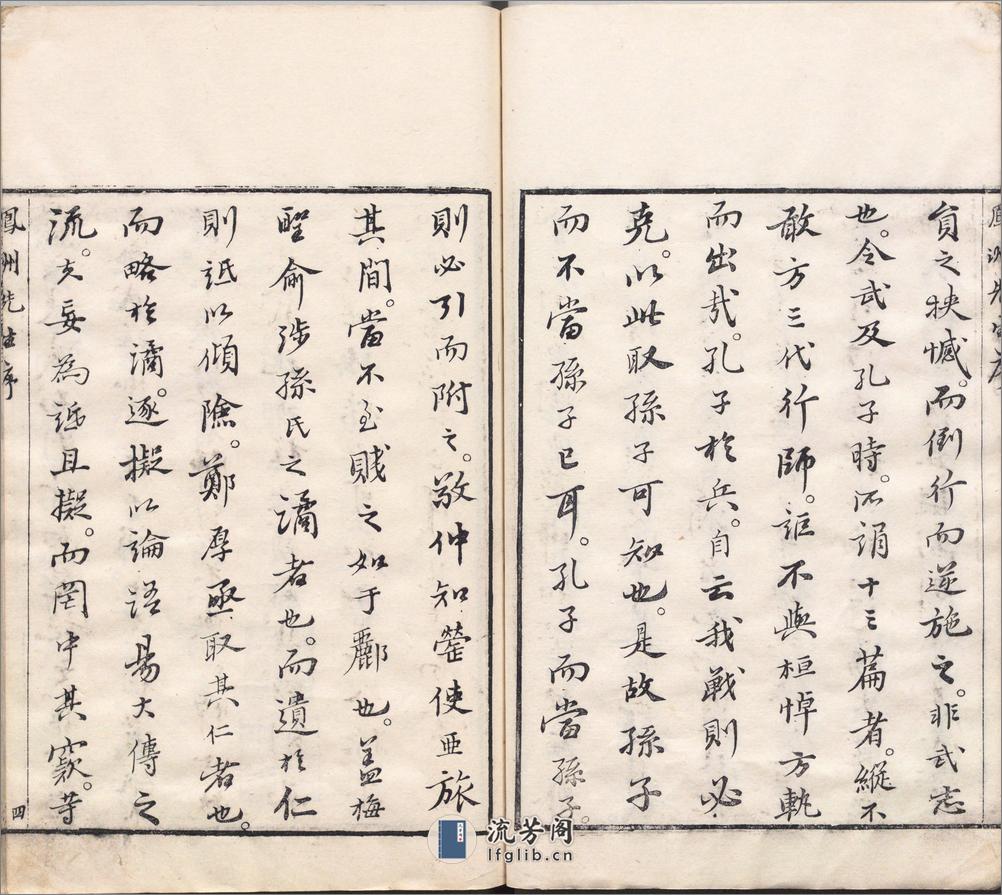 員之怏憾。而倒行而逆施之。非武志
也。令武及孔子時。所謂十三篇者。縱不
敢方三代行師。詎不與桓悼方軌
而出哉。孔子於兵。自云我戰則必
克。以此取孫子可知也。是故孫子
而不當孫子已耳。孔子而當孫子。
則必引而附之。敬仲知罃使亞旅
其間。當不至賤之如于酈也。盖梅
聖俞涉孫氏之譎者也。而遺於仁
則詆以傾險。鄭厚亟取其仁者也。
而略於譎。遂擬以論語易大傳之
流。夫妄為詆且擬。而罔中其窾。等
鳳洲先生序
四
鳳洲先生序
流芳阁
lfglib.cn